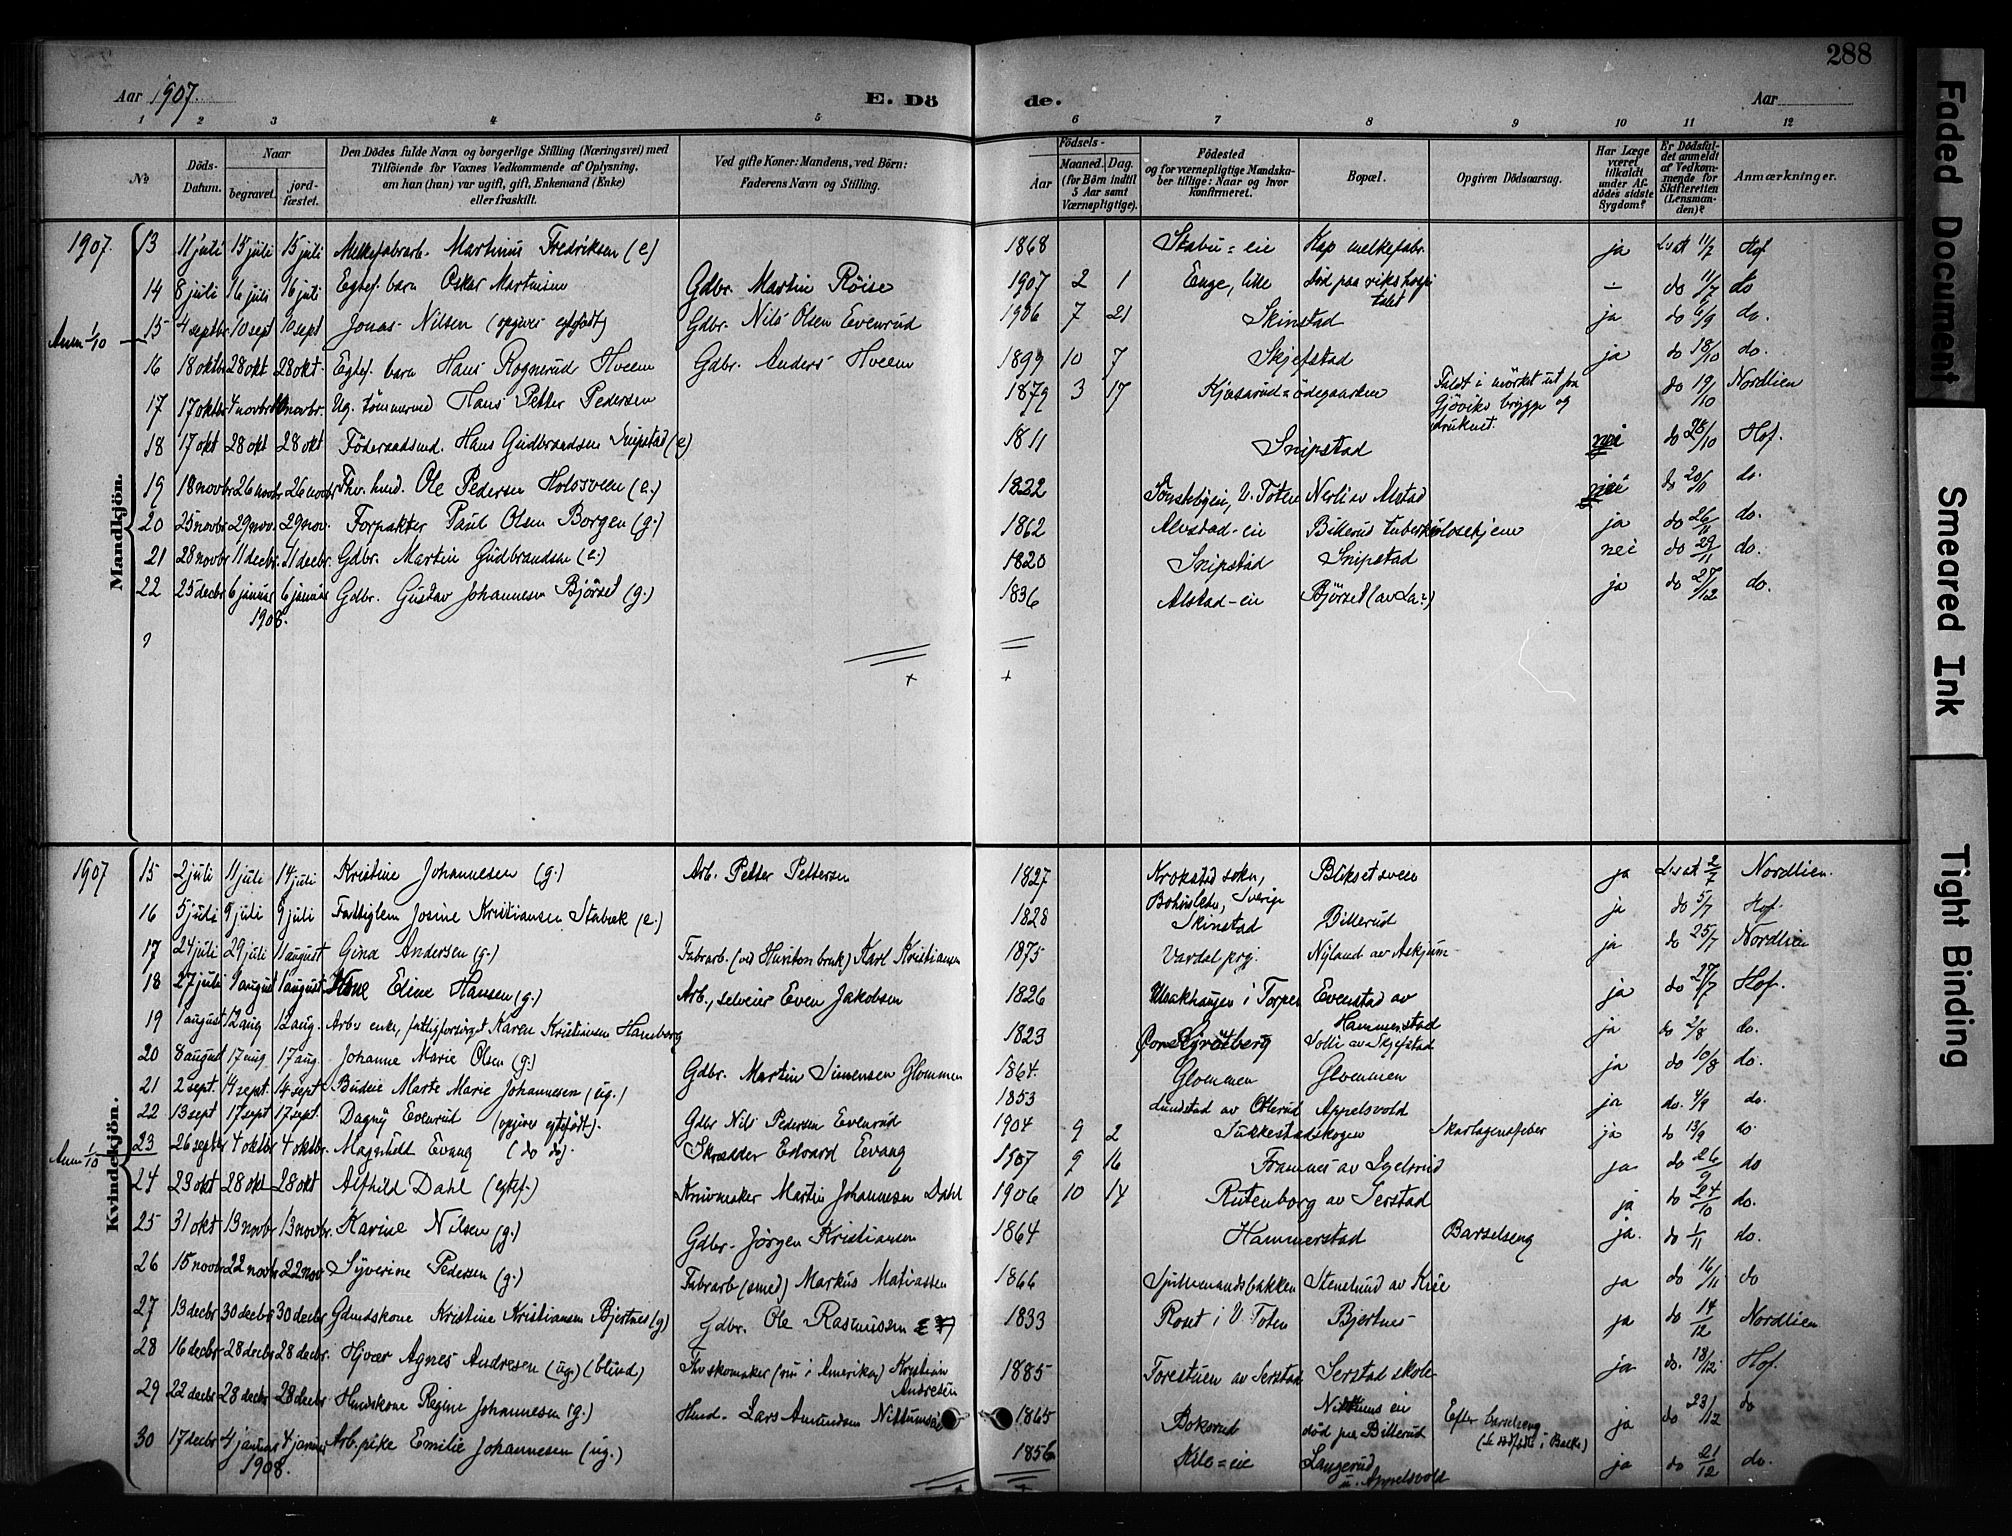 288
Aar 1907.
E. Dö
de.
Aar
1 2 3 4 5 6 7 8 9 10 11 12
No
Döds-Datum.
Naar
begravet.
jord-fæstet.
Den Dödes fulde Navn og borgerlige Stilling (Næringsvei) med
Tilföiende for Voxnes Vedkommende af Oplysning,
om han (hun) var ugift, gift, Enkemand (Enke)
eller fraskilt.
Ved gifte Koner: Mandens, ved Börn:
Faderens Navn og Stilling.
Födsels-
Aar
Maaned. Dag.
(for Börn indtil
5 Aar samt
Værnepligtige).
Födested
og for værnepligtige Mandska-
ber tillige: Naar og hvor
konfirmeret.
Bopæl.
Opgiven Dödsaarsag.
Har Læge
været
tilkaldt
under Af-
dödes sidste
Sygdom?
Er Dödsfal-
det anmeldt
af Vedkom-
mende for
Skifteretten
(Lensman-
den)?
Anmærkninger.
Mandkjön.
1907. 13 11 juli 15 juli 15 juli Melkefabrarb. Martinus Fredriksen (e) 1868 Stabu=eie Kap melkefabr. ja 11/7 Hof
14 8 juli 16 juli 16 juli Egtef. barn Oskar Martinsen Gdbr. Martin Röise 1907 2 1 Enge, lille död paa rikshospitalet – do 11/7 do
Anm 1/10 15 4 septbr 10 sept 10 sept Jonas Nilsen (opgives egtefödt) Gdbr. Nils Olsen Evenrud 1906 7 21 Skinstad ja do 6/9 do.
16 18 oktbr 28 okt 28 okt. Egtef. barn Hans Rognerud Hveem Gdbr. Anders Hveem 1899 10 7 Skjefstad ja do 18/10 do.
17 17 oktbr 4 novbr 4 novbr. Ug. tömmermd Hans Petter Pedersen 1879 3 17 Kjøsarud=ødegaarden Faldt i mörket ut fra Gjöviks brygge og druknet. do 19/10 Nordlien
18 17 okt 28 okt 28 okt Föderaadsmd. Hans Gudbrandsen Snipstad (e) 1811 Snipstad nei do 28/10 Hof.
19 18 novbr 26 novbr 26 novbr Fhv. husmd. Ole Pedersen Holosveen (e.) 1822 V. Toten Nerli av Alstad nei do 20/11 do.
20 25 novbr 29 nov. 29 nov. Forpakter Paul Olsen Borgen (g.) 1862 Alvstad-eie Billerud tuberkulosehjem ja do 26/11 do.
21 28 novbr 11 decbr. 11 decbr. Gdbr. Martin Gudbrandsen (e.) 1820 Snipstad Snipstad nei do 29/11 do.
22 25 decbr 6 januar 1908. 6 januar Gdbr. Gustav Johannesen Bjørset (g.) 1836 Alstad-eie Bjørset ja do 27/12 do.
Kvindekjön.
1907 15 2 juli 11 juli 14 juli Kristine Johannesen (g.) Arb. Petter Pettersen 1827 Krokstad sokn, Bohuslen, Sverige Blikset sveen ja 2/7 Nordlien.
16 5 juli 9 juli 9 juli Fattiglem Josine Kristiansen Stabæk (e.) 1828 Skinstad Billerud ja do 5/7 Hof.
17 24 juli 29 juli 11 august Gina Andersen (g.) Fabrarb. (ved Hunton bruk) Karl Kristiansen 1875 Vardal prg. Nyland av Askjum ja do 25/7 Nordlien
18 27 juli 1 august 1 august Eline Hansen (g.) Arb., selveier Even Jakobsen 1826 i Torpen Evenstad av Hammerstad ja do 27/7 Hof.
19 1 august 12 aug 12 aug. Arb. enke, fattigforsørget Karen Kristiansen Hamborg 1823 av Skjefstad ja do 2/8 do.
20 8 august 17 aug. 17 aug. Johanne Marie Olsen (g.) Gdbr. Martin Simensen Glommen 1864 Glommen Glommen ja do 10/8 do.
21 2 sept. 14 sept. 14 sept Budeie Marte Marie Johannesen (ug.) 1853 Lundstad av Otterud Appelsvold ja do. 4/9 do.
22 13 sept 17 sept 17 sept. Dagny Evenrud (opgives egtefödt). Gdbr Nils Pedersen Evenrud 1904 9 2 Sukkestadskogen Skarlagensfeber ja do 13/9 do
Anm 1/10 23 26 septbr 4 oktbr 4 oktbr. Magnhild Evang (do do). Skrædder Edvard Evang 1907 9 16 Framnes av Igelsrud ja do 26/9 do
24 23 okt 28 okt 28 okt Alfhild Dahl (egtef.) Martin Johannesen Dahl 1906 10 14 Rutenborg av Serstad ja do 24/10 do.
25 31 okt 13 novbr 13 novbr. Karine Nilsen (g.) Gdbr. Jörgen Kristiansen 1864 Hammerstad Barselseng ja. do 1/11 do.
26 15 novbr 22 novbr 22 nov. Syverine Pedersen (g.) Fabrarb (smed) Markus Matiassen 1866 Spillemandsbakken Stenslund av Krie ja do 16/11 do
27 13 decbr 30 decbr 30 decbr. Gdmdskone Kristine Kristiansen Bjertnes (g) Gdbr. Ole Rasmussen 1833 Roset i V. Toten Bjertnes ja do 14/12 Nordlien
28 16 decbr 28 decbr 28 decbr. Agnes Andresen (ug.) (blind) Fhv skomaker (nu i Amerika) Kristian Andresen 1885 Forestuen av Serstad Serstad skole ja do. 18/12 Hof.
29 22 decbr 28 decbr 28 decbr Husmdskone Regine Johannesen (g.) Husmd. Lars Amundsen 1865 Bokerud eie död paa Billerud Efter barselseng ja do 23/12 do
30 17 decbr 4 januar 1908. 4 januar Arb. pike Emilie Johannesen (ug.) 1856 Kile=eie Langerud u. Appelsvold ja do 21/12 do.
Faded Document
Smeared Ink
Tight Binding